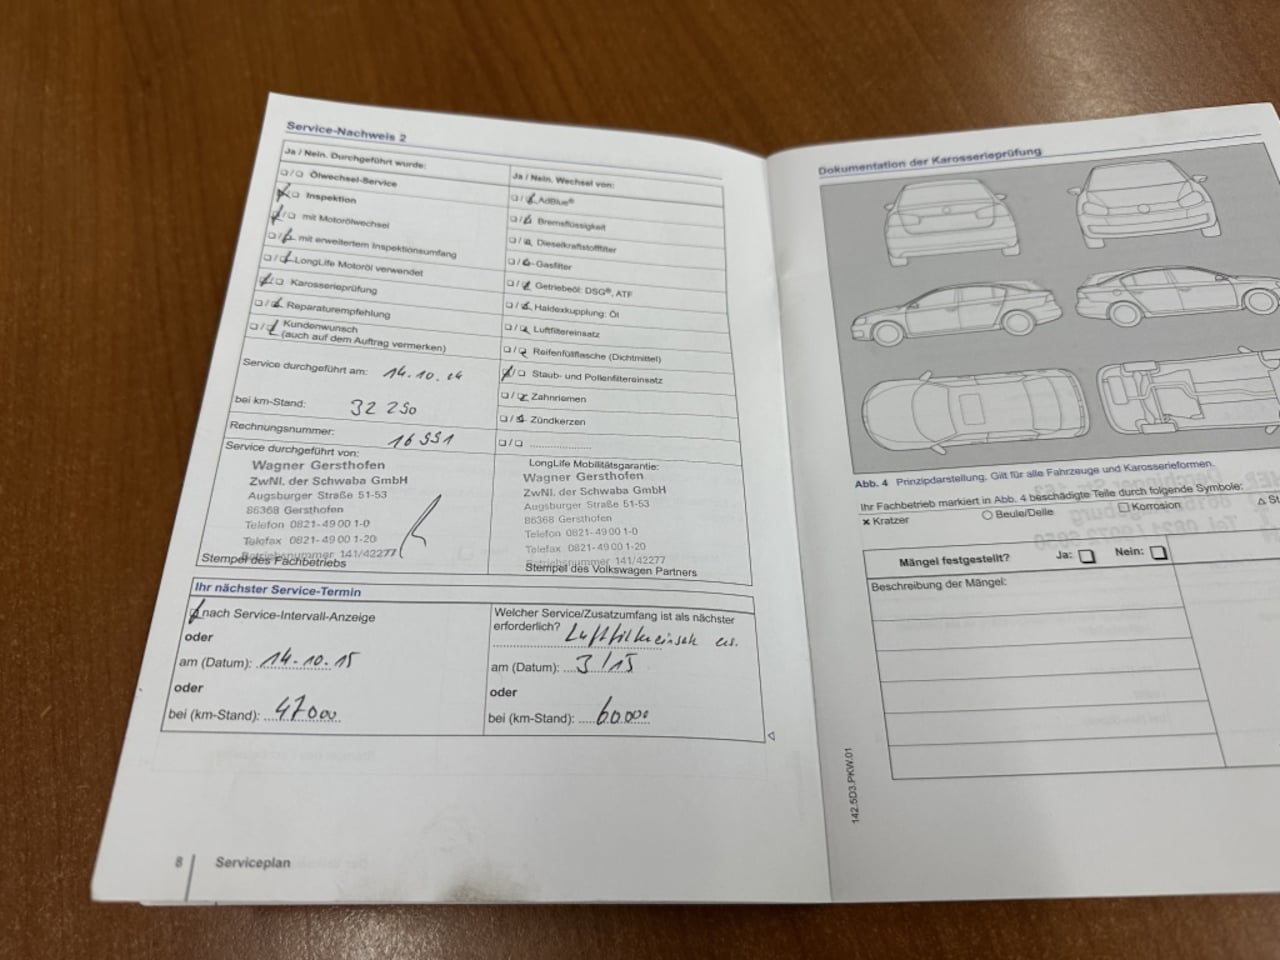 Service-Nachweis 2
Ja / Nein. Durchgeführt wurde:
❑/❑ Ölwechsel-Service
❑/❑ Inspektion
❑/❑ mit Motorölwechsel
❑/❑ mit erweitertem Inspektionsumfang
❑/❑ LongLife Motoröl verwendet
❑/❑ Karosserieprüfung
❑/❑ Reparaturempfehlung
❑/❑ Kundenwunsch
(auch auf dem Auftrag vermerken)
Service durchgeführt am: 14.10.14
bei km-Stand: 32 250
Rechnungsnummer: 16551
Service durchgeführt von:
Wagner Gersthofen
ZwNl. der Schwaba GmbH
Augsburger Straße 51-53
86368 Gersthofen
Telefon 0821-49 00 1-0
Telefax 0821-49 00 1-20
Betriebsnummer 141/42277
Stempel des Fachbetriebs
Ja / Nein. Wechsel von:
❑/❑ AdBlue®
❑/❑ Bremsflüssigkeit
❑/❑ Dieselkraftstofffilter
❑/❑ Gasfilter
❑/❑ Getriebeöl: DSG®, ATF
❑/❑ Haldexkupplung: Öl
❑/❑ Luftfiltereinsatz
❑/❑ Reifenfüllflasche (Dichtmittel)
❑/❑ Staub- und Pollenfiltereinsatz
❑/❑ Zahnriemen
❑/❑ Zündkerzen
❑/❑ ....................
LongLife Mobilitätsgarantie:
Wagner Gersthofen
ZwNl. der Schwaba GmbH
Augsburger Straße 51-53
86368 Gersthofen
Telefon 0821-49 00 1-0
Telefax 0821-49 00 1-20
Betriebsnummer 141/42277
Stempel des Volkswagen Partners
Ihr nächster Service-Termin
❑ nach Service-Intervall-Anzeige
oder
am (Datum): 14.10.15
oder
bei (km-Stand): 47000
Welcher Service/Zusatzumfang ist als nächster
erforderlich? Luftfiltereinsatz
am (Datum): 3/15
oder
bei (km-Stand): 60.000
8 Serviceplan
Dokumentation der Karosserieprüfung
Abb. 4 Prinzipdarstellung. Gilt für alle Fahrzeuge und Karosserieformen.
Ihr Fachbetrieb markiert in Abb. 4 beschädigte Teile durch folgende Symbole:
× Kratzer ○ Beule/Delle ❑ Korrosion △ St
Mängel festgestellt? Ja: ❑ Nein: ❑
Beschreibung der Mängel:
142.5D3.PKW.01